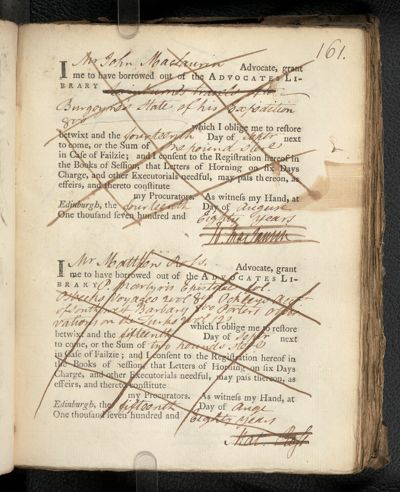 161.
I Mr John Maclaurin Advocate, grant
me to have borrowed out of the ADVOCATES LI-
BRARY
Burgoyne's State of his Expedition
8vo which I oblige me to restore
betwixt and the fourteenth Day of next
to come, or the Sum of pound
in Case of Failzie; and I consent to the Registration hereof in
the Books of Session, that Letters of Horning on six Days
Charge, and other Executorials needful, may pass thereon, as
effeirs, and thereto constitute
my Procurators. As witness my Hand, at
Edinburgh, the fourteenth Day of August
One thousand seven hundred and Eighty Years
I Mr Matthew Ross. Advocate, grant
me to have borrowed out of the ADVOCATES LI-
BRARY P. Martyris Epistolae fol.
Voyages 2 vol 8vo
of South West Barbary 8vo Porters Obser
vations on the Turks which I oblige me to restore
betwixt and the fifteenth Day of Septr next
to come, or the Sum of two pounds
in Case of Failzie; and I consent to the Registration hereof in
the Books of Session, that Letters of Horning on six Days
Charge, and other Executorials needful, may pass thereon, as
effeirs, and thereto constitute
my Procurators. As witness my Hand, at
Edinburgh, the fifteenth Day of Augt
One thousand seven hundred and Eighty Years
Mat. Ross